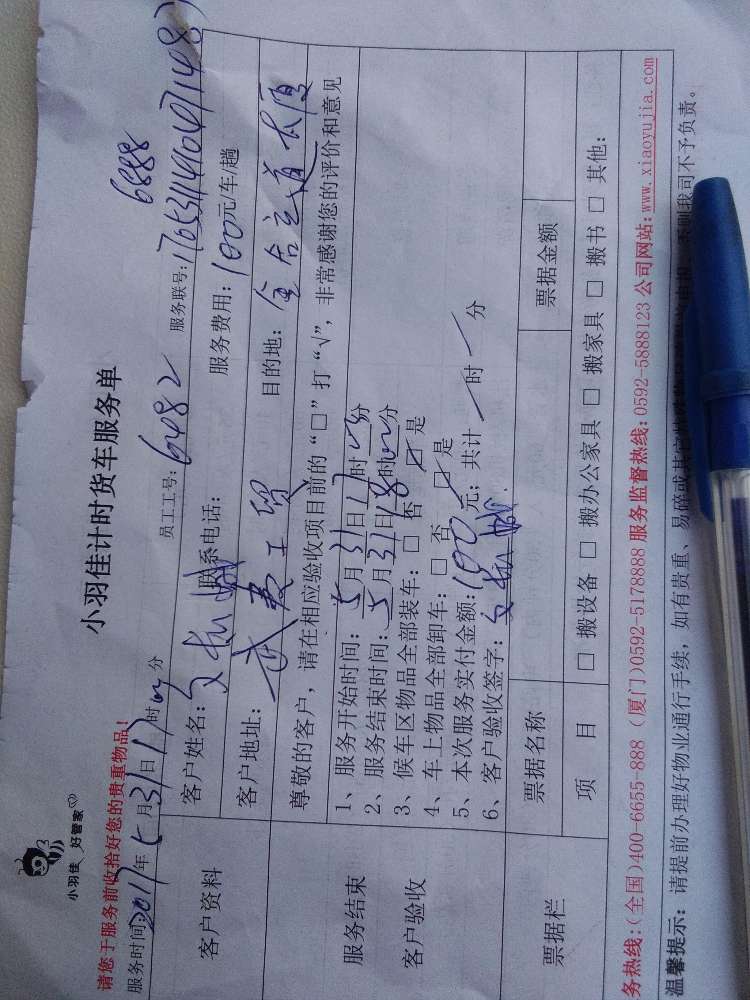 小羽佳 好管家
小羽佳计时货车服务单
6888
请您于服务前收拾好您的贵重物品!
服务时间:2017年5月31日17时00分 员工工号:6482 服务联号:
客户资料
客户姓名: 联系电话: 服务费用:100元/车/趟
客户地址: 工贸 目的地:
尊敬的客户,请在相应验收项目前的“□”打“√”,非常感谢您的评价和意见
服务结束
客户验收
1、服务开始时间:5月31日17时00分
2、服务结束时间:5月31日18时00分
3、候车区物品全部装车:□ 否 ☑ 是
4、车上物品全部卸车:□ 否 ☑ 是
5、本次服务实付金额:100元;共计/时/分
6、客户验收签字:
票据栏
票据名称 票据金额
项 目 □ 搬设备 □ 搬办公家具 □ 搬家具 □ 搬书 □ 其他:
务热线:(全国)400-6655-888 (厦门)0592-5178888 服务监督热线:0592-5888123 公司网站:www.xiaoyujia.com
温馨提示:请提前办理好物业通行手续,如有贵重、易碎或其它 我司不予负责。